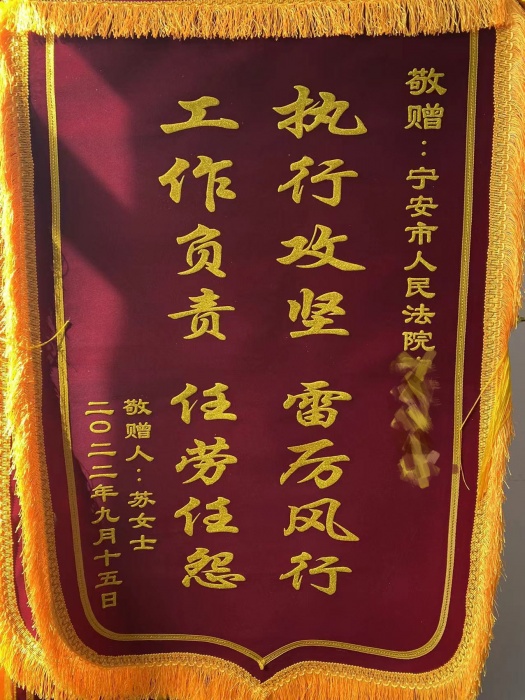 敬赠：宁安市人民法院
执行攻坚 雷厉风行
工作负责 任劳任怨
敬赠人：苏女士
二〇二二年九月十五日